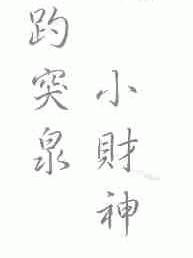 小財神
趵突泉